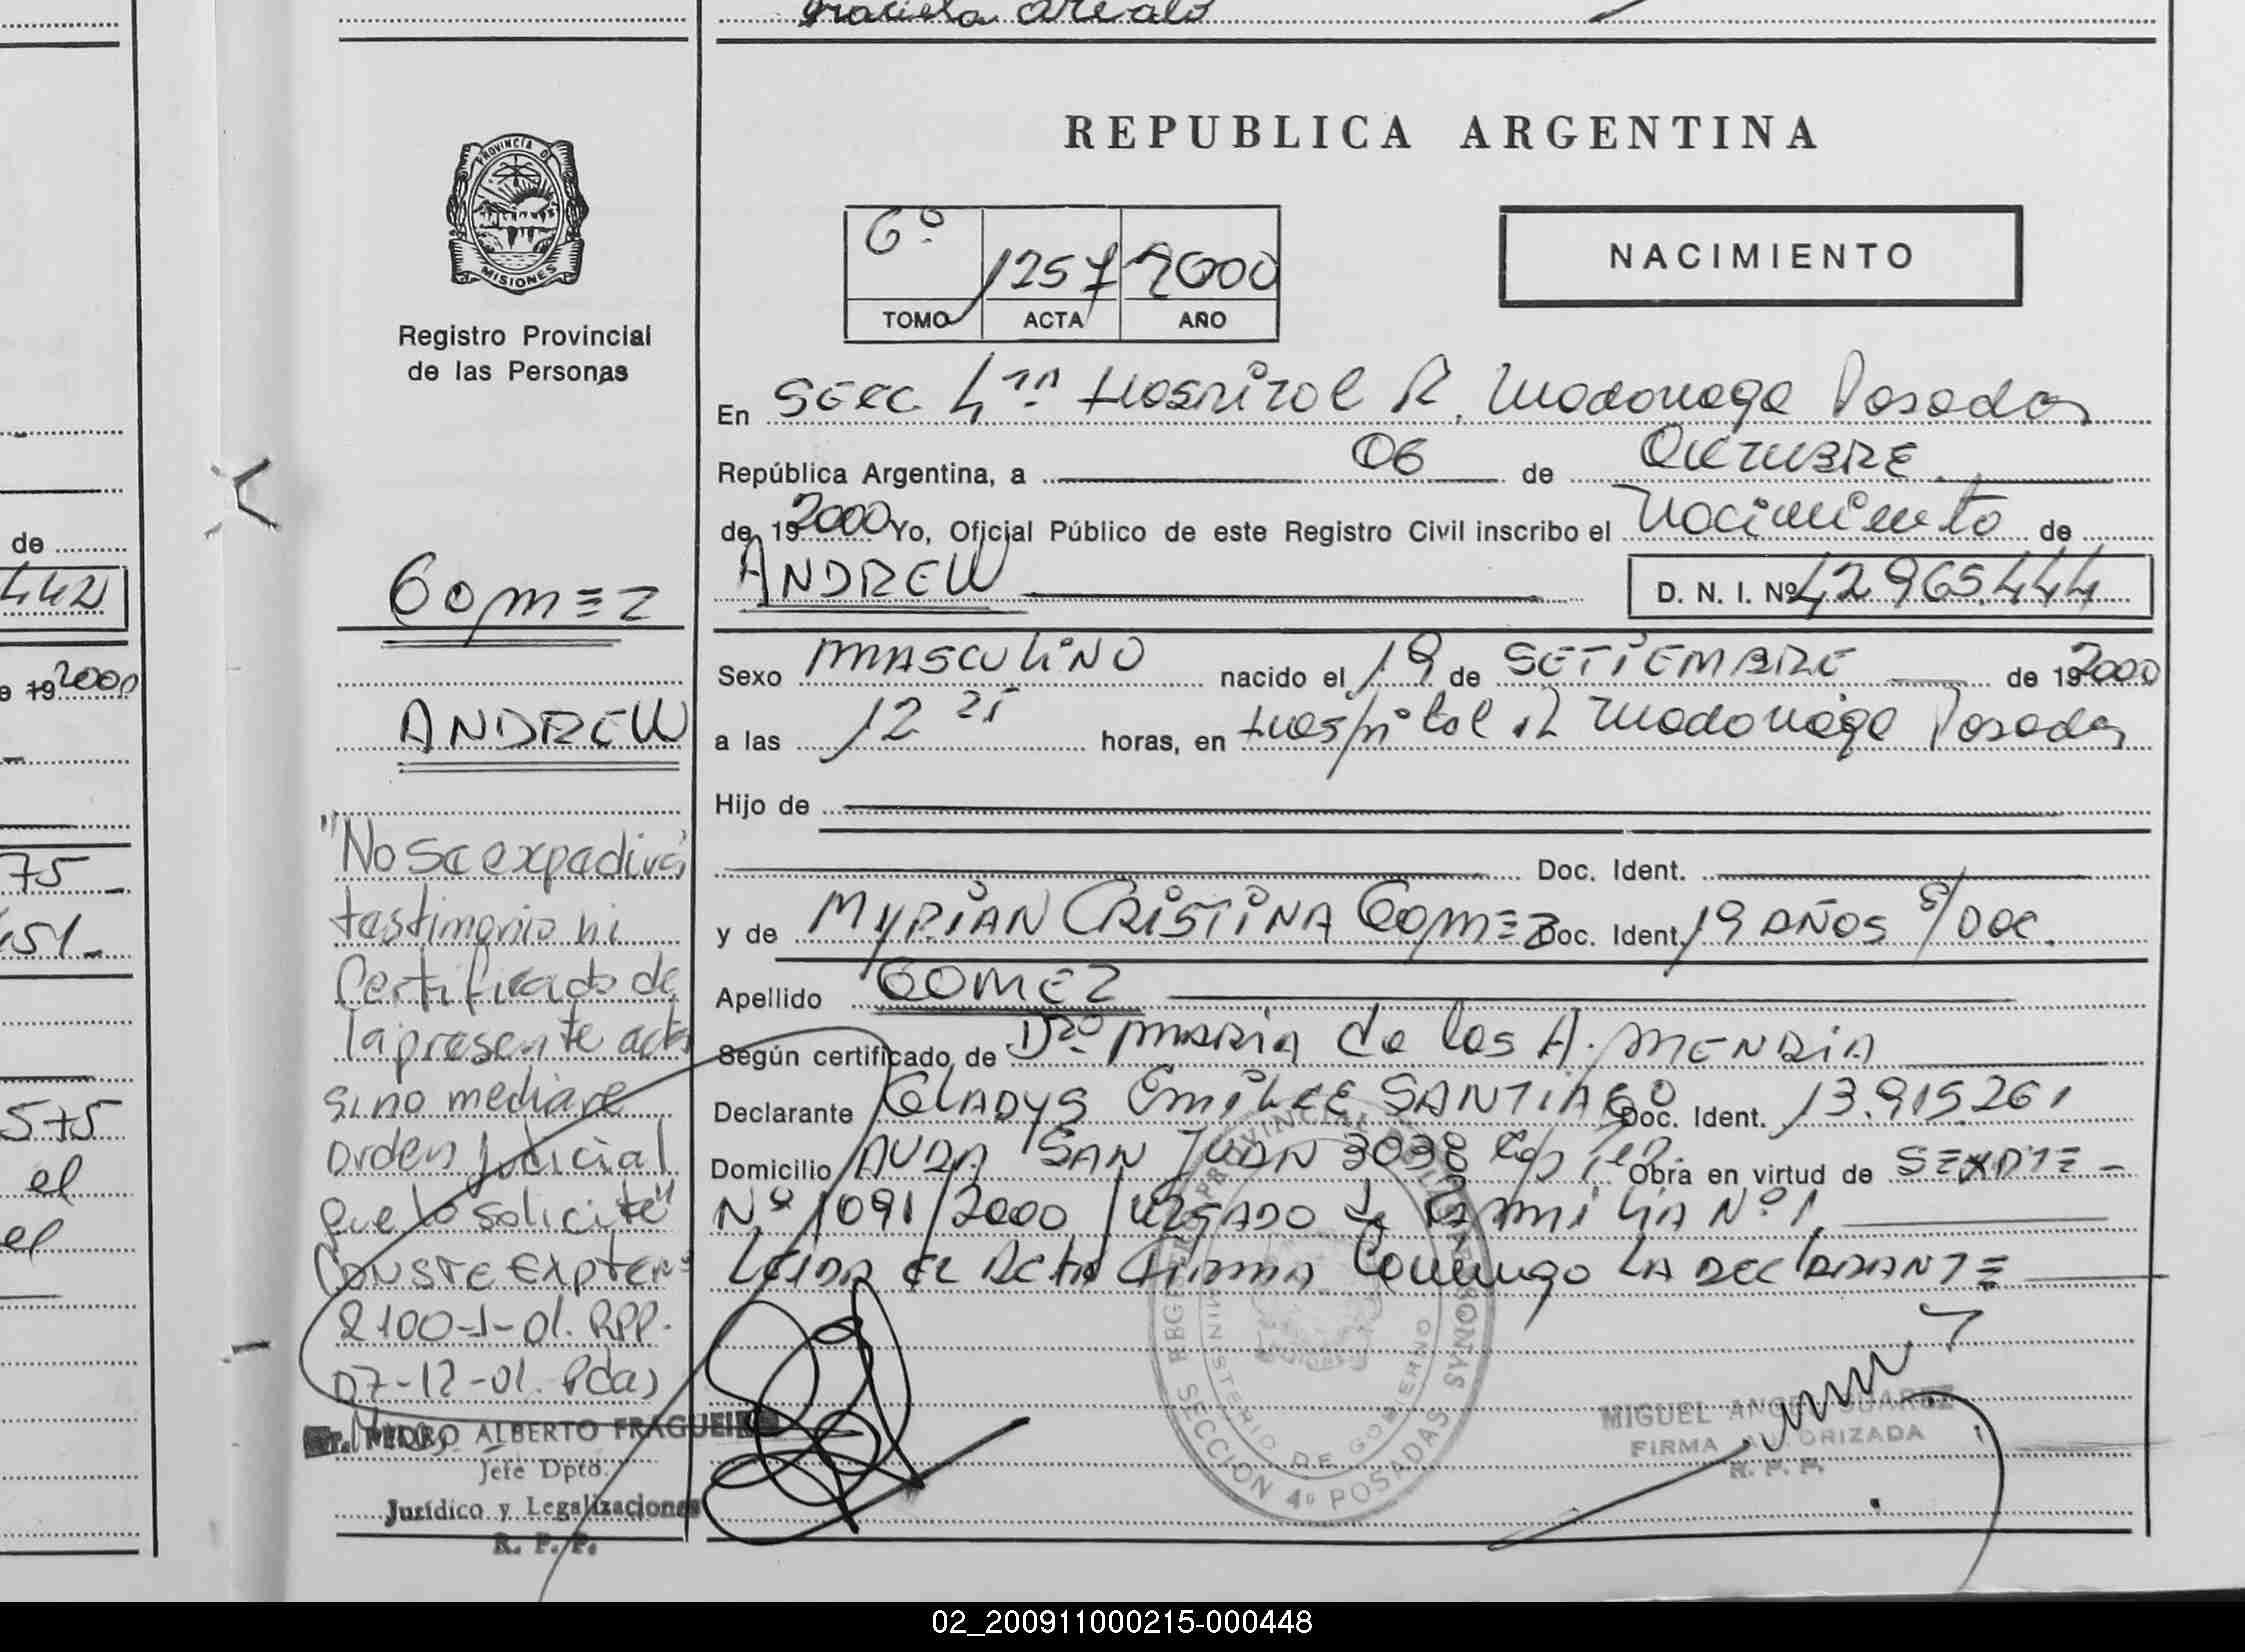 Graciela Arevalo
REPUBLICA ARGENTINA
PROVINCIA D
MISIONES
Registro Provincial
de las Personas
6º 1257 2000
TOMO ACTA AÑO
NACIMIENTO
En SECC. 4ta Hospital R. Madariaga Posadas
República Argentina, a 06 de OCTUBRE
de 192000 Yo, Oficial Público de este Registro Civil inscribo el Nacimiento de
ANDREW D. N. I. Nº 42965.444
GOMEZ
ANDREW
Sexo MASCULINO nacido el 19 de SETIEMBRE de 192000
a las 12 25 horas, en Hospital R Madariaga Posadas
Hijo de
Doc. Ident.
y de MYRIAN CRISTINA GOMEZ Doc. Ident. 19 AÑOS S/DOC.
Apellido GOMEZ
Según certificado de Dra MARIA de los A.
Declarante GLADYS EMILCE SANTIAGO Doc. Ident. 13.915.261
Domicilio AVDA SAN JUAN 3038 Obra en virtud de
Nº 1091/2000 JUZGADO de FAMILIA Nº 1
LEIDA EL ACTA FIRMA Conmigo LA DECLARANTE
"No se expedirá
testimonio ni
Certificado de
la presente acta
sino mediare
orden judicial
que lo solicite"
CONSTE EXPTE Nº
2100-J-01. RPP.
07-12-01. Pdas
PEDRO ALBERTO FRAGUEIRO
Jefe Dpto.
Jurídico y Legalizaciones
R. P. P.
REGISTRO PROVINCIAL DE LAS PERSONAS
MINISTERIO DE GOBIERNO
SECCION 4º POSADAS
MIGUEL ANGEL SUAREZ
FIRMA AUTORIZADA
R. P. P.
de
442
192000
75
451
575
el
el
02_200911000215-000448